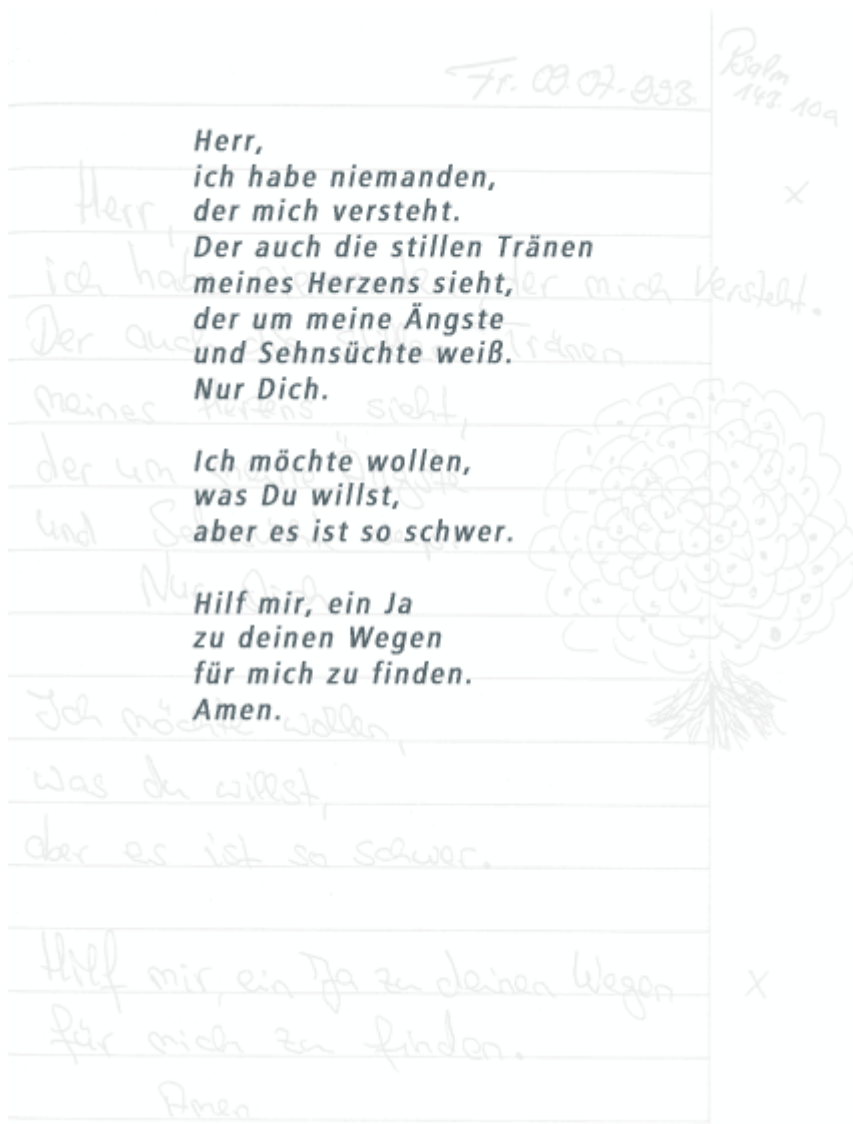 Fr. 09.07.1993
Psalm
143. 10a
Herr,
ich habe niemanden,
der mich versteht.
Der auch die stillen Tränen
meines Herzens sieht,
der um meine Ängste
und Sehnsüchte weiß.
Nur Dich.
Ich möchte wollen,
was Du willst,
aber es ist so schwer.
Hilf mir, ein Ja
zu deinen Wegen
für mich zu finden.
Amen.
Herr,
ich habe der mich versteht.
Der auch Tränen
meines Herzens sieht,
der um meine Ängste
und
Nur Dich
Ich möchte wollen,
was du willst,
aber es ist so schwer.
Hilf mir, ein Ja zu deinen Wegen
für mich zu finden.
Amen